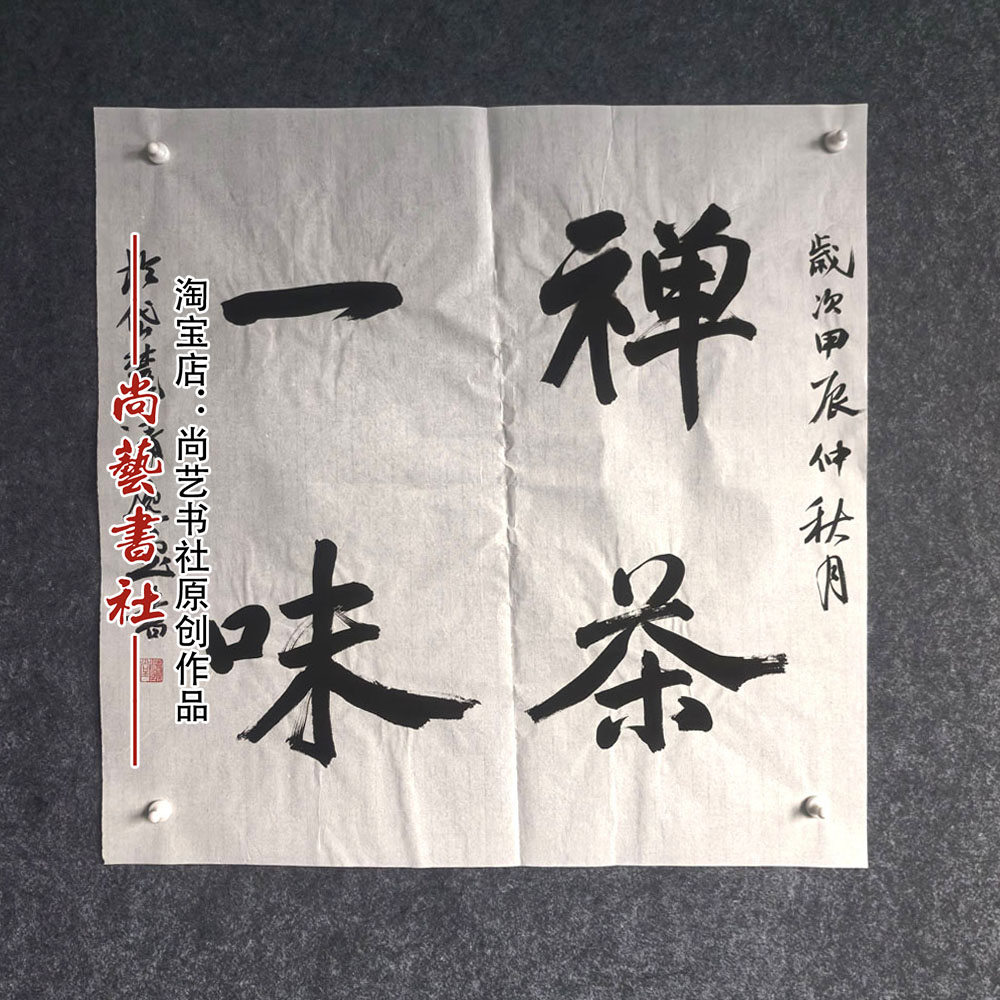 歲次甲辰仲秋月
禅茶
一味
淘宝店：尚艺书社原创作品
尚藝書社